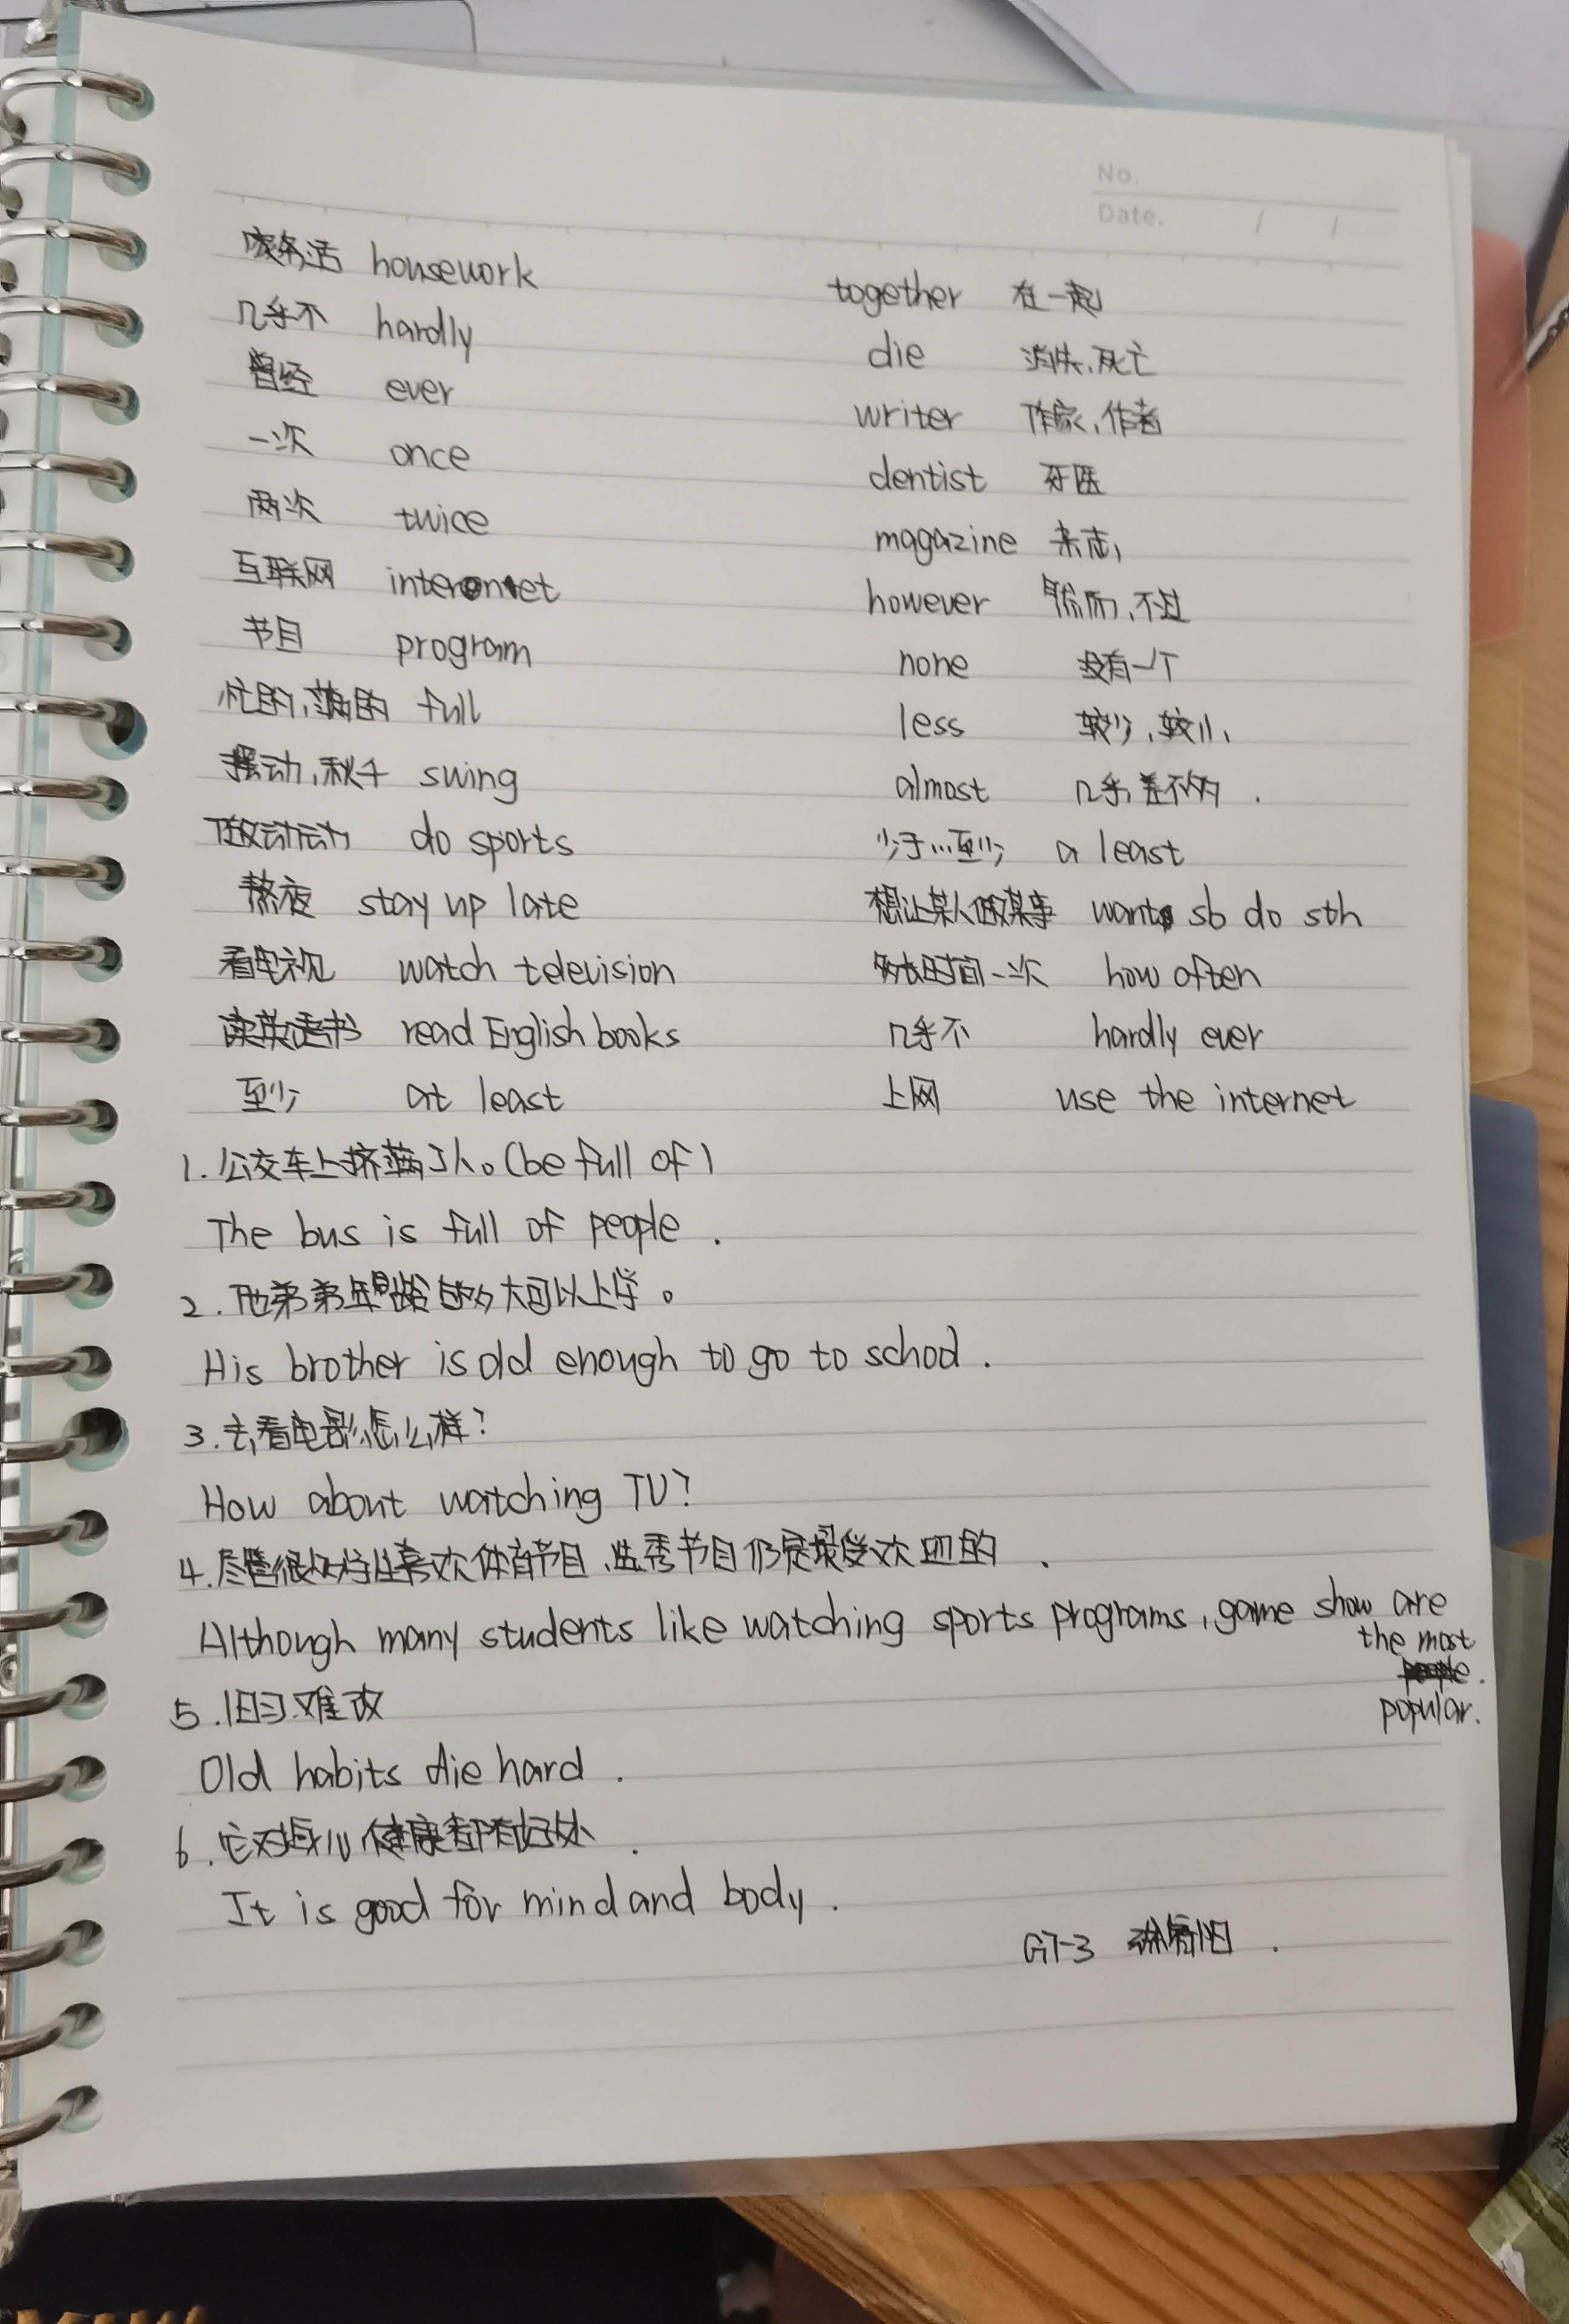 No.
Date. / /
家务活 housework together 在一起
几乎不 hardly die 消失,死亡
曾经 ever writer 作家,作者
一次 once dentist 牙医
两次 twice magazine 杂志,
互联网 internet however 然而,不过
节目 program none 没有一个
忙的,满的 full less 较少,较小,
摆动,秋千 swing almost 几乎,差不多.
做运动 do sports 少于…至少 a least
熬夜 stay up late 想让某人做某事 want sb do sth
看电视 watch television 多长时间一次 how often
读英语书 read English books 几乎不 hardly ever
至少 at least 上网 use the internet
1.公交车上挤满了人。(be full of)
The bus is full of people.
2.他弟弟年龄够大可以上学。
His brother is old enough to go to school.
3.去看电影怎么样?
How about watching TV?
4.尽管很多学生喜欢体育节目,选秀节目仍是最受欢迎的.
Although many students like watching sports programs, game show are
the most
popular.
5.旧习难改
Old habits die hard.
6.它对身心健康都有好处.
It is good for mind and body.
G7-3